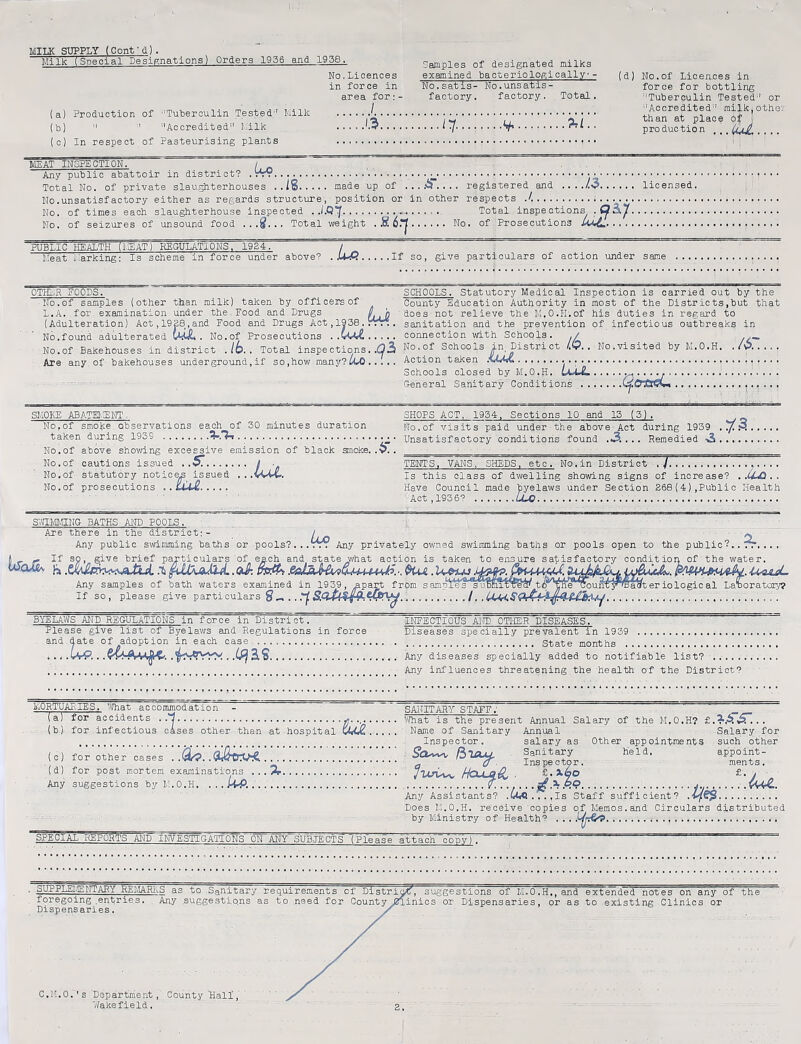 MILK SUPPLY (Cont'd).
Milk (Special Designations) Orders 1936 and 1938.
No.Licences in force in area for:-
Samples of designated milks examined bacteriologically:-
No.satis- factory. No.unsatis- factory. Total.
(d) No.of Licences in force for bottling "Tuberculin Tested" or "Accredited" milk, other than at place of production ... Nil.....
(a) Production of "Tuberculin Tested" Milk ..... 1 .....
(b) " " "Accredited" Milk ..... 13 ..... 17 ..... 4 ..... 21 ..
(c) In respect of Pasteurising plants .....
MEAT INSPECTION.
Any public abattoir in district? . No .....
Total No. of private slaughterhouses .. 18 ..... made up of ... 5 .... registered and .... 13 ..... licensed.
No.unsatisfactory either as regards structure, position or in other respects . 1 .....
No. of times each slaughterhouse inspected .. 107 ..... Total inspections . 937 .....
No. of seizures of unsound food ... 8 ... Total weight . 867 ...... No. of Prosecutions Nil .....
PUBLIC HEALTH (MEAT) REGULATIONS, 1924.
Meat Marking: Is scheme in force under above? . No ..... If so, give particulars of action under same .....
OTHER FOODS.
No.of samples (other than milk) taken by officers of
L.A. for examination under the Food and Drugs
(Adulteration) Act,1928,and Food and Drugs Act,1938. Nil
No.found adulterated Nil . No.of Prosecutions .. Nil .....
No.of Bakehouses in district . 16 .. Total inspections. 93
Are any of bakehouses underground,if so,how many? No ....
SCHOOLS. Statutory Medical Inspection is carried out by the
County Education Authority in most of the Districts,but that
does not relieve the M.O.H.of his duties in regard to
sanitation and the prevention of infectious outbreaks in
connection with Schools.
No.of Schools in District 16 . No.visited by M.O.H. . 15 ....
Action taken . Nil .....
Schools closed by M.O.H. Nil .....
General Sanitary Conditions ...... Good .....
SMOKE ABATEMENT.
No.of smoke observations each of 30 minutes duration
taken during 1939 ........ 22 .....
No.of above showing excessive emission of black smoke. 5 .
No.of cautions issued .. 5 ........
No.of statutory notices issued ... Nil.
No.of prosecutions .. Nil .....
SHOPS ACT, 1934, Sections 10 and 13 (3).
No.of visits paid under the above Act during 1939 . 73 .....
Unsatisfactory conditions found . 3 .... Remedied . 3 .....
TENTS, VANS, SHEDS, etc. No.in District . 1 .....
Is this class of dwelling showing signs of increase? . No ..
Have Council made byelaws under Section 268(4),Public Health
Act,1936? ...... No .....
SWIMMING BATHS AND POOLS.
Are there in the district:-
Any public swimming baths or pools? .. No .. Any privately owned swimming baths or pools open to the public? .. 2 ....
If so, give brief particulars of each and state what action is taken to ensure satisfactory condition of the water.
Water is chlorinated & filtrated at both establishments. One now uses Council supply which previously used
unsatisfactory private supply
Any samples of bath waters examined in 1939, apart from samples submitted to the County Bacteriological Laboratory?
If so, please give particulars 8 - .. 7 Satisfactory .......... 1. unsatisfactory .....
BYELAWS AND REGULATIONS in force in District.
Please give list of Byelaws and Regulations in force
and date of adoption in each case .....
.... No change from 1938 .....
INFECTIOUS AND OTHER DISEASES.
Diseases specially prevalent in 1939 .....
..... State months .....
Any diseases specially added to notifiable list? .....
Any influences threatening the health of the District?
MORTUARIES. What accommodation -
(a) for accidents .. 7 .....
(b) for infectious cases other than at hospital Nil .....
(c) for other cases .. As above .....
(d) for post mortem examinations ... 2 .....
Any suggestions by M.O.H. .... No .....
SANITARY STAFF.
What is the present Annual Salary of the M.O.H? £. 255 ...
Name of Sanitary Inspector. Annual salary as Sanitary Inspector. Other appointments held. Salary for such other appointments.
Sam Bray £. 260 £. 
Irvin Haigh £ 260 Nil
Any Assistants? . No .... Is Staff sufficient? . Yes .....
Does M.O.H. receive copies of Memos.and Circulars distributed
by Ministry of Health? ... Yes .....
SPECIAL REPORTS AND INVESTIGATIONS ON ANY SUBJECTS (Please attach copy).
SUPPLEMENTARY REMARKS as to Sanitary requirements of District, suggestions of M.O.H., and extended notes on any of the
foregoing entries. Any suggestions as to need for County Clinics or Dispensaries, or as to existing Clinics or
Dispensaries.
C.M.O.'s Department, County Hall,
Wakefield.
2.